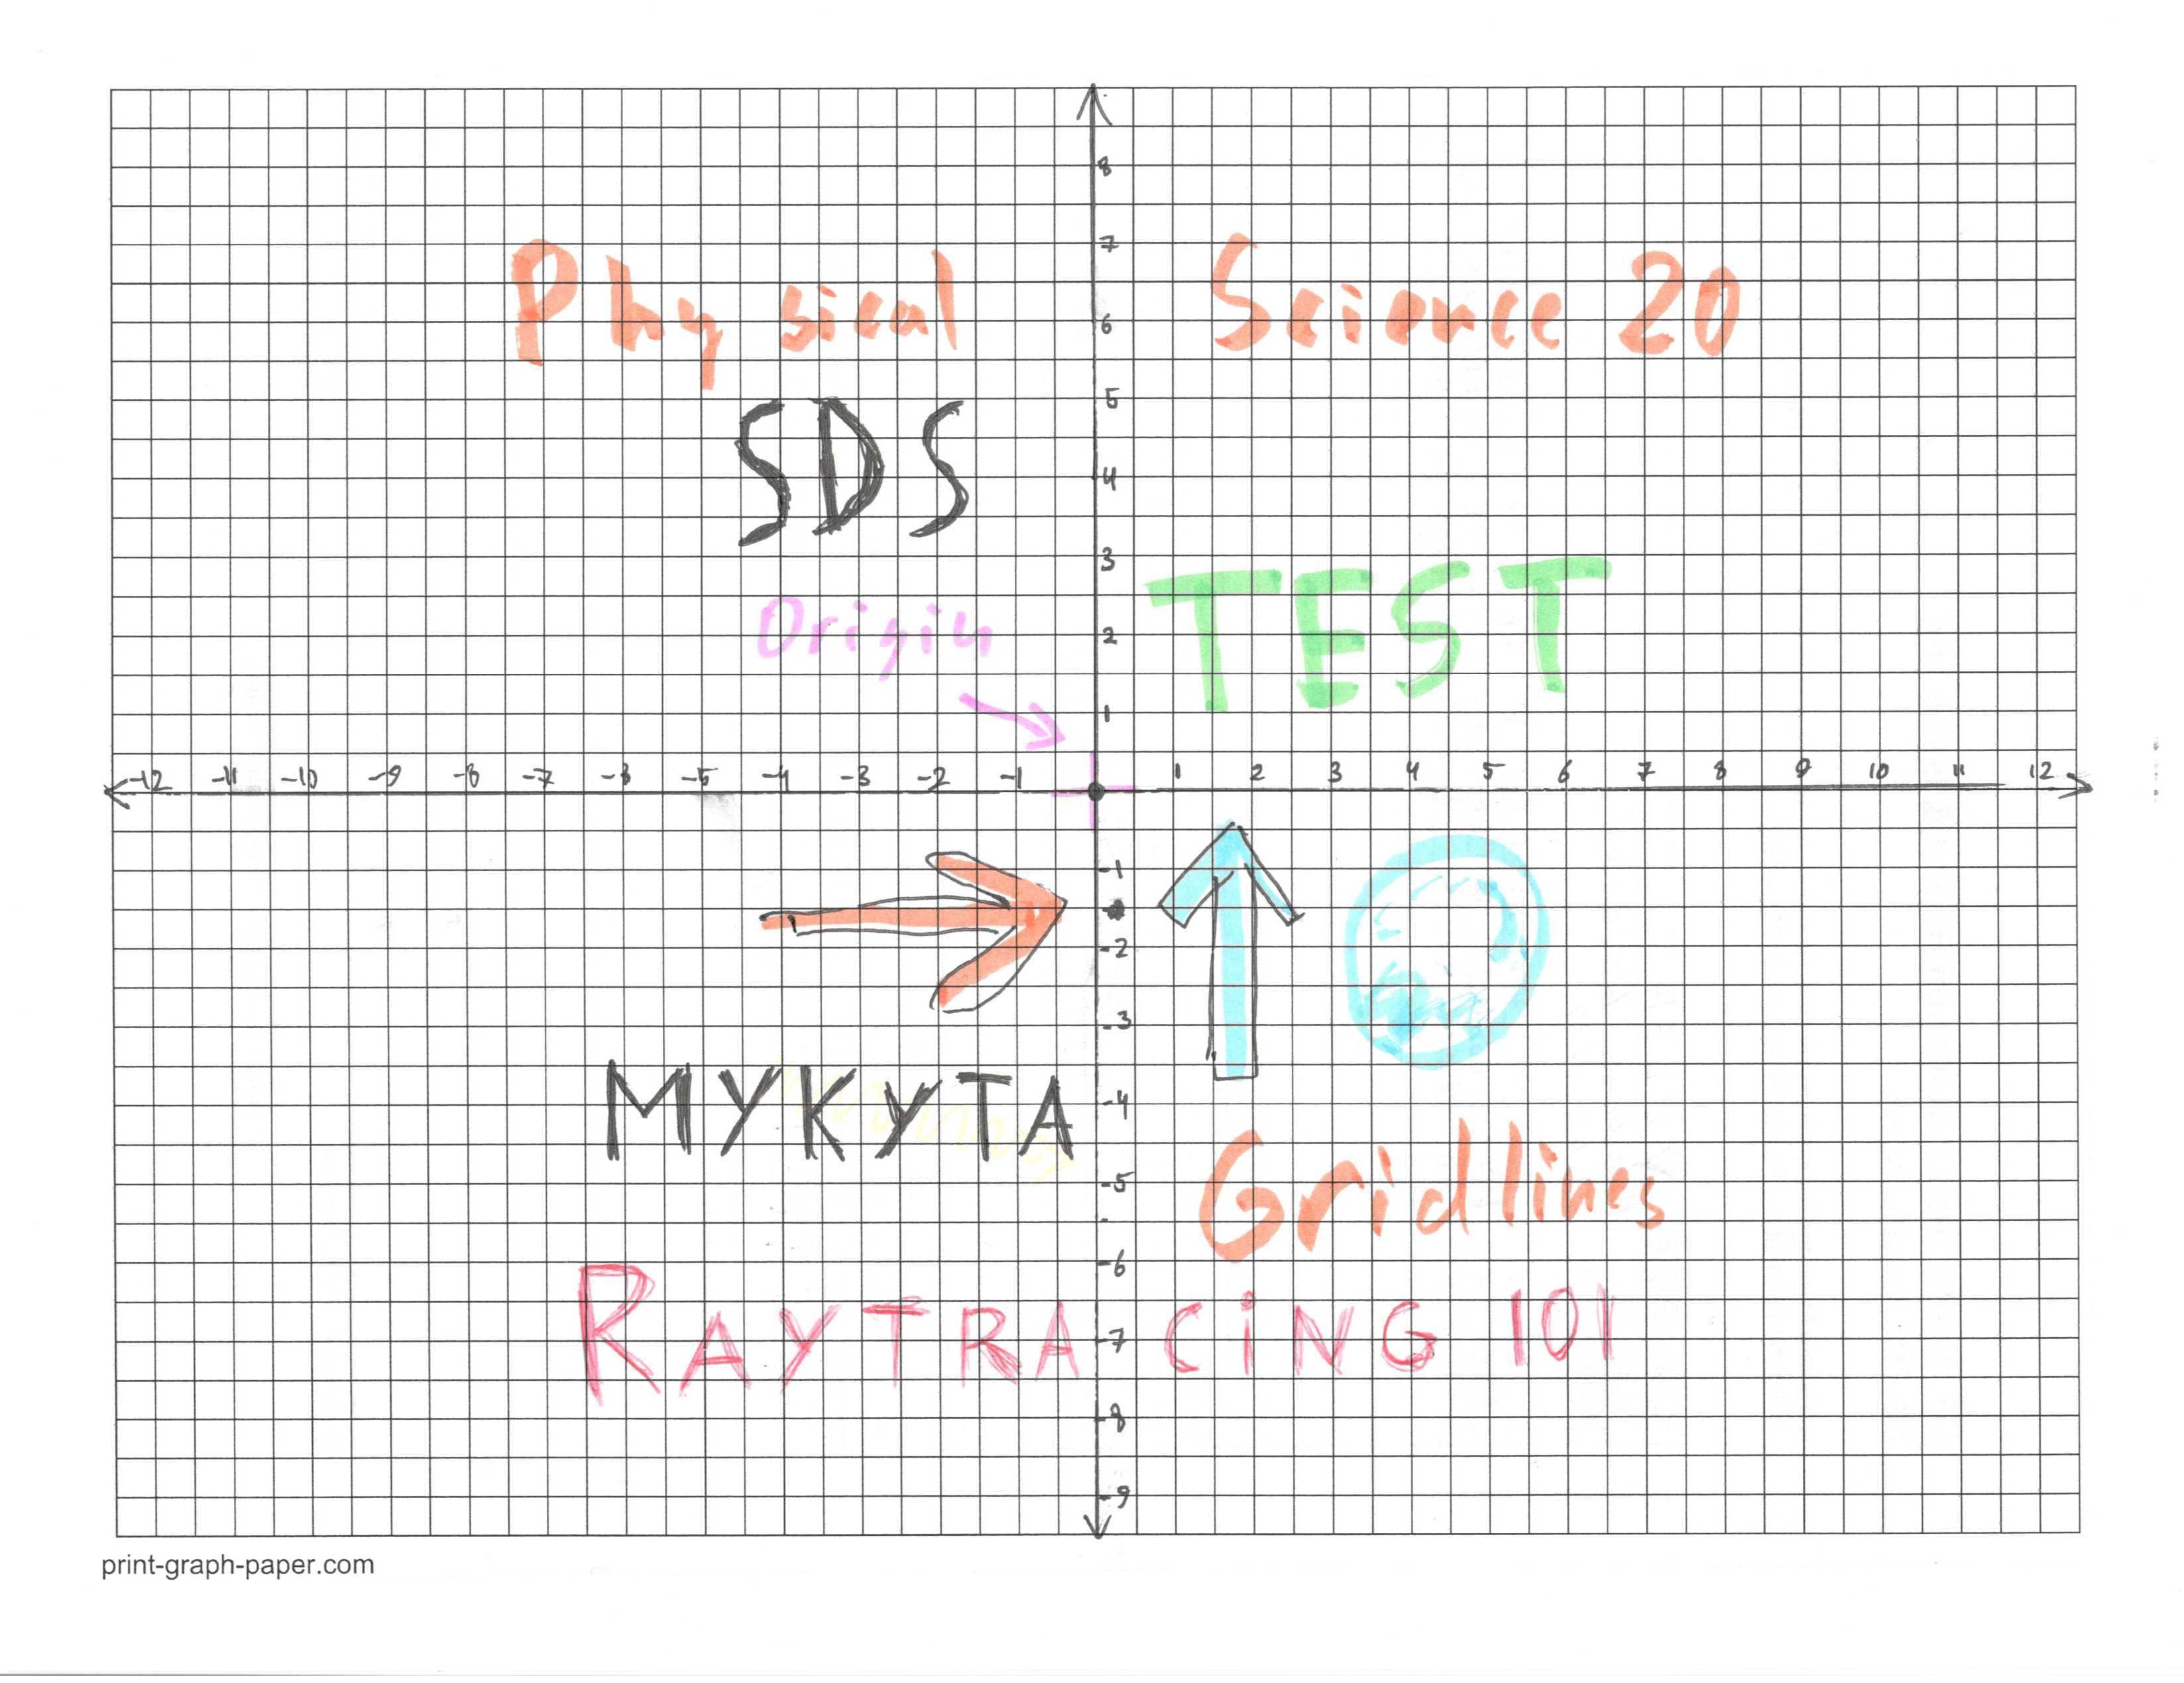 8
7
Physical Science 20
6
5
SDS
4
3
TEST
Origin
2
1
-12 -11 -10 -9 -8 -7 -6 -5 -4 -3 -2 -1 1 2 3 4 5 6 7 8 9 10 11 12
-1
-2
-3
MYKYTA
-4
Gridlines
-5
-6
RAYTRACiNG 101
-7
-8
-9
print-graph-paper.com